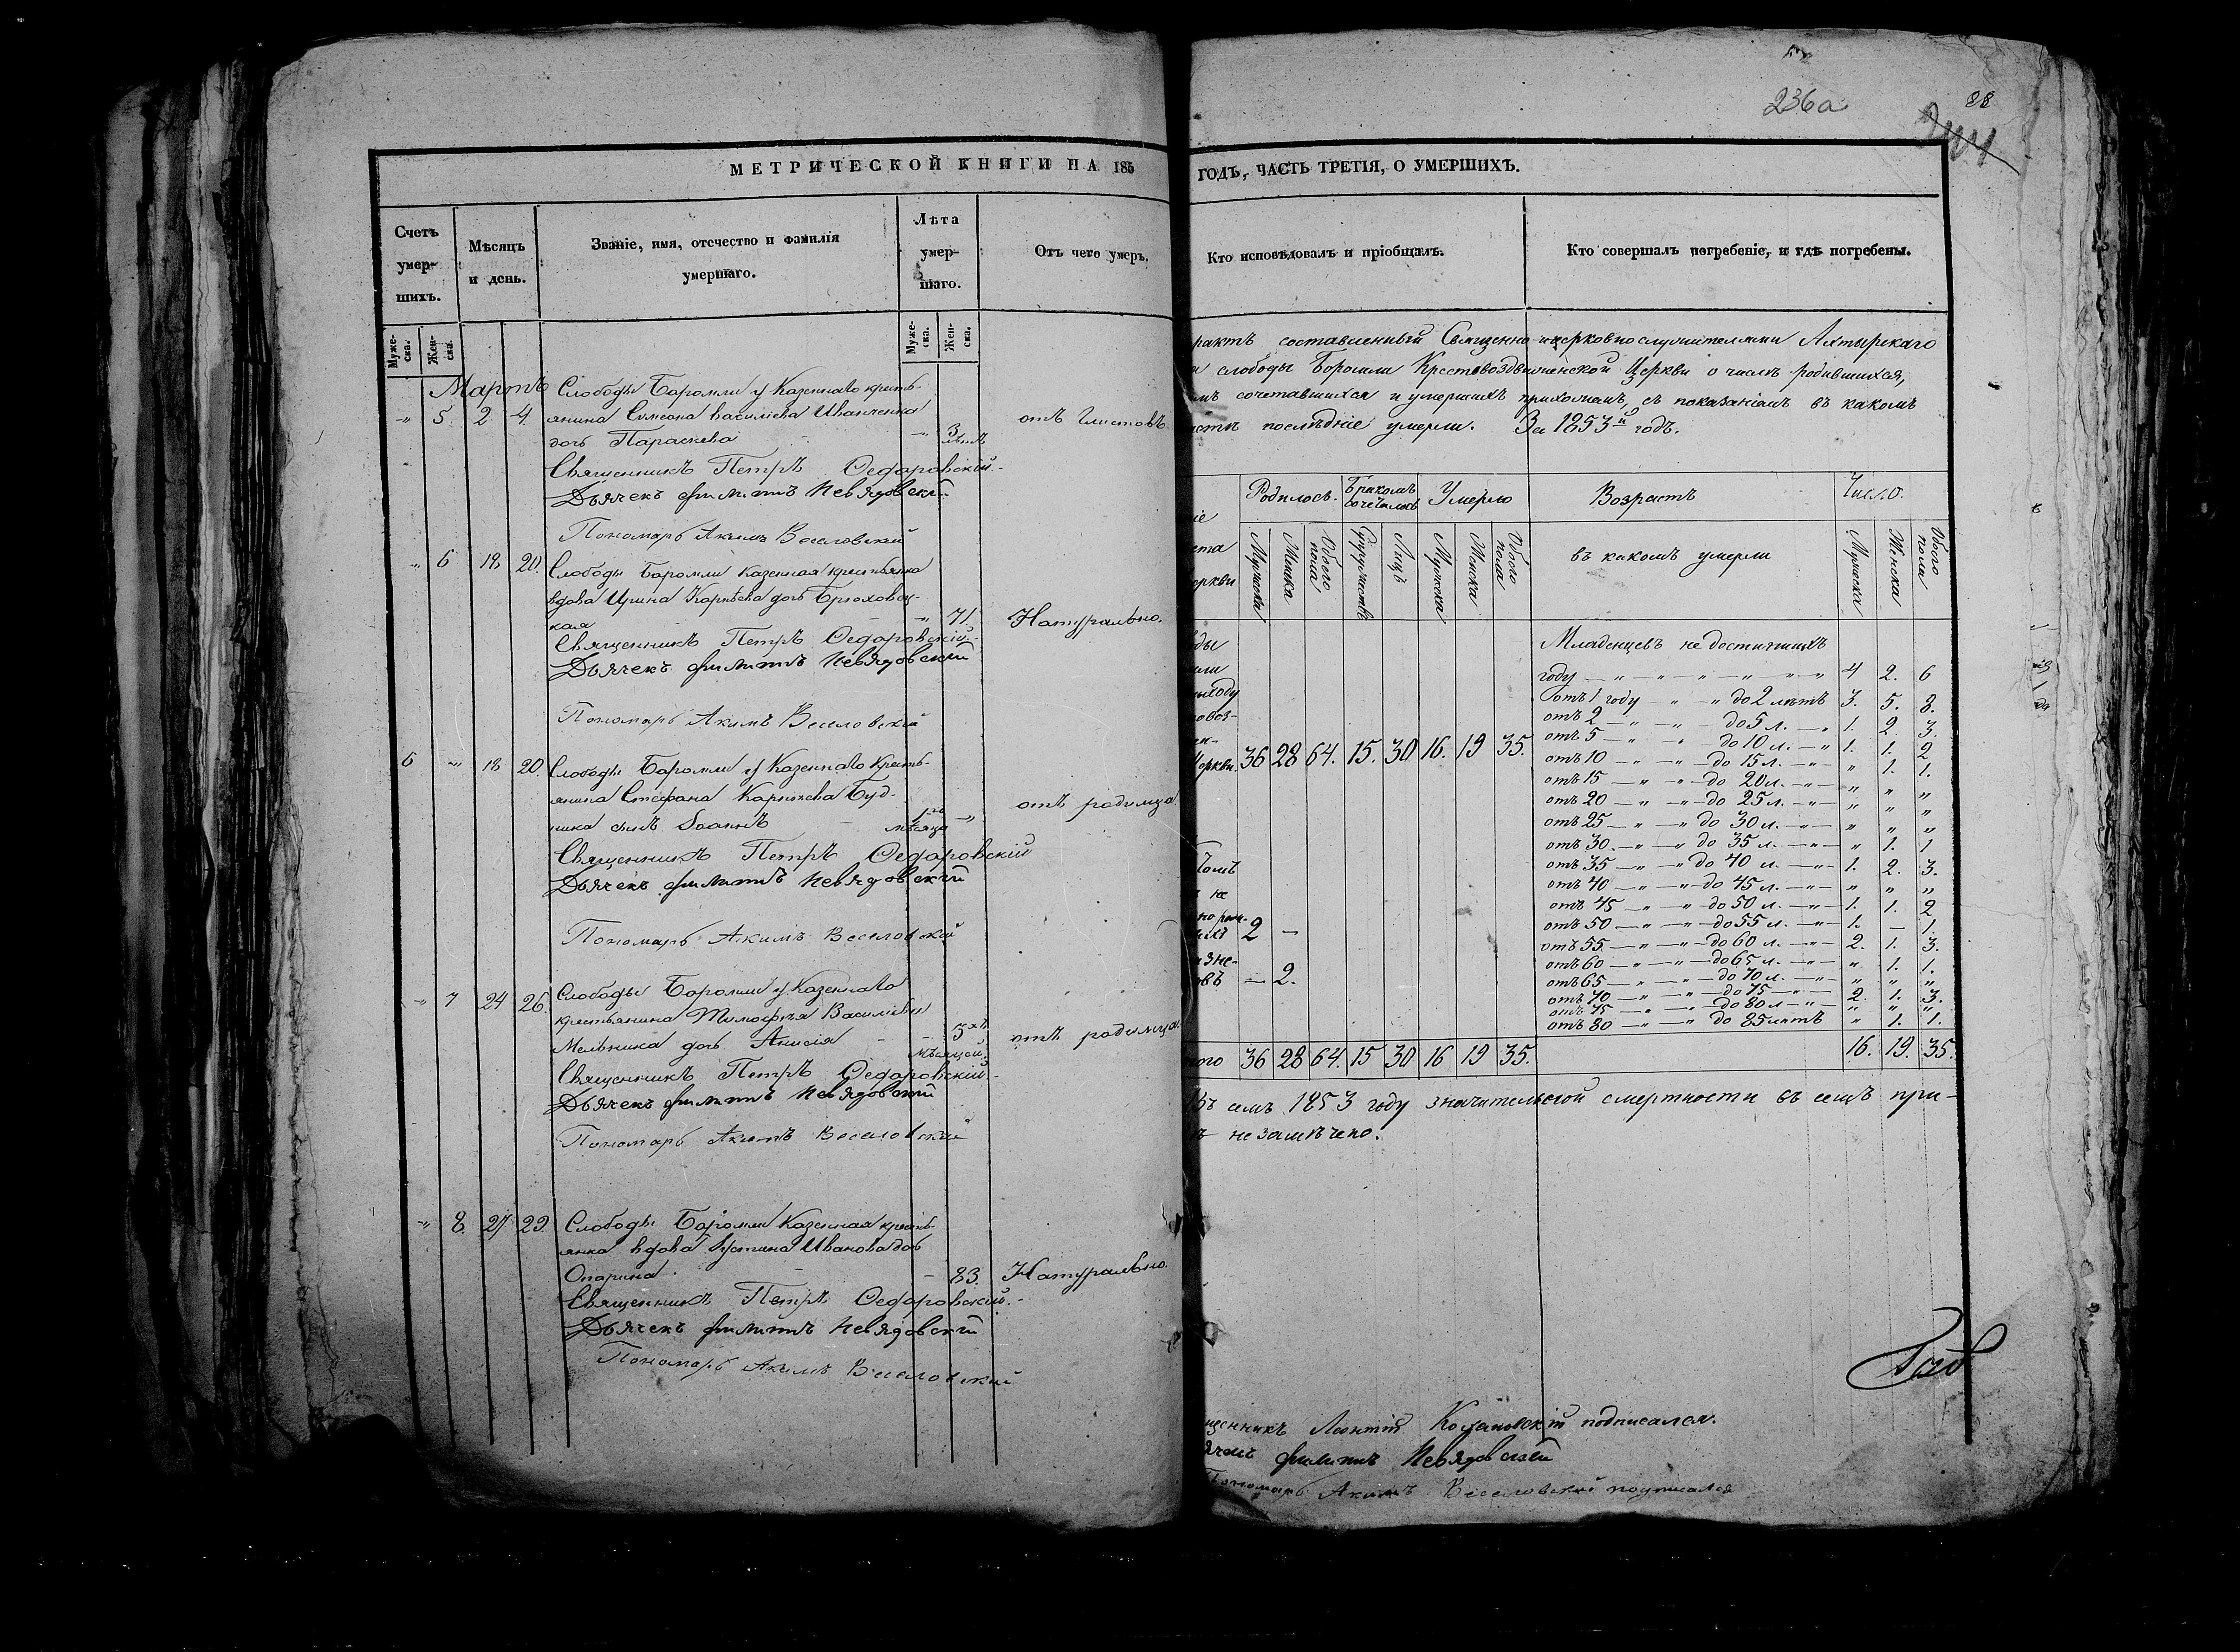 236а
28
МЕТРИЧЕСКОЙ КНИГИ НА 185
Счетъ умер-шихъ.
Мѣсяцъ и день.
Званіе, имя, отечество и фамилія умершаго.
Лѣта умер-шаго.
Отъ чего умеръ.
Муже-ска.
Жен-ска.
Муже-ска.
Жен-ска.
Мартъ
Слободы Боромли у Казеннаго кресть-
" 5. 2 4. янина Симеона Василіева Иванченка
дочь Параскева " 3 лѣтъ отъ Глистовъ
Священникъ Петръ Ѳедоровскій
Дьячекъ Филиппъ Невядовскій
Пономарь Акимъ Веселовскій
" 6 18 20. Слободы Боромли Казенная крестьянка
вдова Ирина Корнѣева дочь Брюховец-
кая " 71. Натурально.
Священникъ Петръ Ѳедоровскій
Дьячекъ Филиппъ Невядовскій
Пономарь Акимъ Веселовскій
6 " 18 20. Слободы Боромли у Казеннаго Кресть-
янина Стефана Буд-
ника сынъ Іоаннъ 1го мѣсяца " отъ родимца
Священникъ Петръ Ѳедоровскій
Дьячекъ Филиппъ Невядовскій
Пономарь Акимъ Веселовскій
" 7 24 26. Слободы Боромли у Казеннаго
крестьянина Тимофея Василіева
Мельника дочь Анисія мѣсяцей отъ родимца
Священникъ Петръ Ѳедоровскій
Дьячекъ Филиппъ Невядовскій
Пономарь Акимъ Веселовскій
" 8. 27 29. Слободы Боромли Казенная кресть-
янка вдова Іустина Иванова дочь
Опарина 83. Натурально.
Священникъ Петръ Ѳедоровскій
Дьячекъ Филиппъ Невядовскій
Пономарь Акимъ Веселовскій
ГОДЪ, ЧАСТЬ ТРЕТІЯ, О УМЕРШИХЪ.
Кто исповѣдовалъ и пріобщалъ.
Кто совершалъ погребеніе, и гдѣ погребены.
рактъ составленный Священно-церковнослужителями Ахтырскаго
слободы Боромли Крестовоздвиженской Церкви о числѣ родившихся,
мъ сочетавшихся и умершихъ прихожанъ, съ показаніемъ въ какомъ
послѣдніе умерли. За 1853й годъ.
Родилось. Бракомъ сочеталось Умерло Возрастъ Число.
Мужска Женска Обоего пола Супружествъ Лицъ Мужска Женска Обоего пола въ какомъ умерли Мужеска Женска Обоего пола
Младенцевъ не достигшихъ
году 4 2. 6
отъ 1 году до 2 лѣтъ 3. 5. 8.
отъ 2 до 5 л. 1. 2. 3.
отъ 5 до 10 л. 1. 1. 2
Церкви 36 28 64. 15. 30 16. 19 35.
отъ 10 до 15 л. " 1. 1.
отъ 15 до 20 л. " " "
отъ 20 до 25 л. " " "
отъ 25 до 30 л. " " "
отъ 30 до 35 л. " 1. 1
отъ 35 до 40 л. 1. 2. 3.
отъ 40 до 45 л. " " "
отъ 45 до 50 л. 1. 1. 2
отъ 50 до 55 л. 1. — 1.
2 —
отъ 55 до 60 л. 2. 1. 3.
отъ 60 до 65 л. " 1. 1.
— 2.
отъ 65 до 70 л. " " "
отъ 70 до 75 2. 1. 3.
отъ 75 до 80 л " " "
отъ 80 до 85 лѣтъ " 1. 1.
36 28 64. 15 30 16 19 35. 16. 19. 35.
Въ семъ 1853 году значительной смертности въ семъ при-
незамѣчено.
щенникъ Леонтій подписался.
ячекъ Филиппъ Невядовскій
Пономарь Акимъ Веселовскій подписался